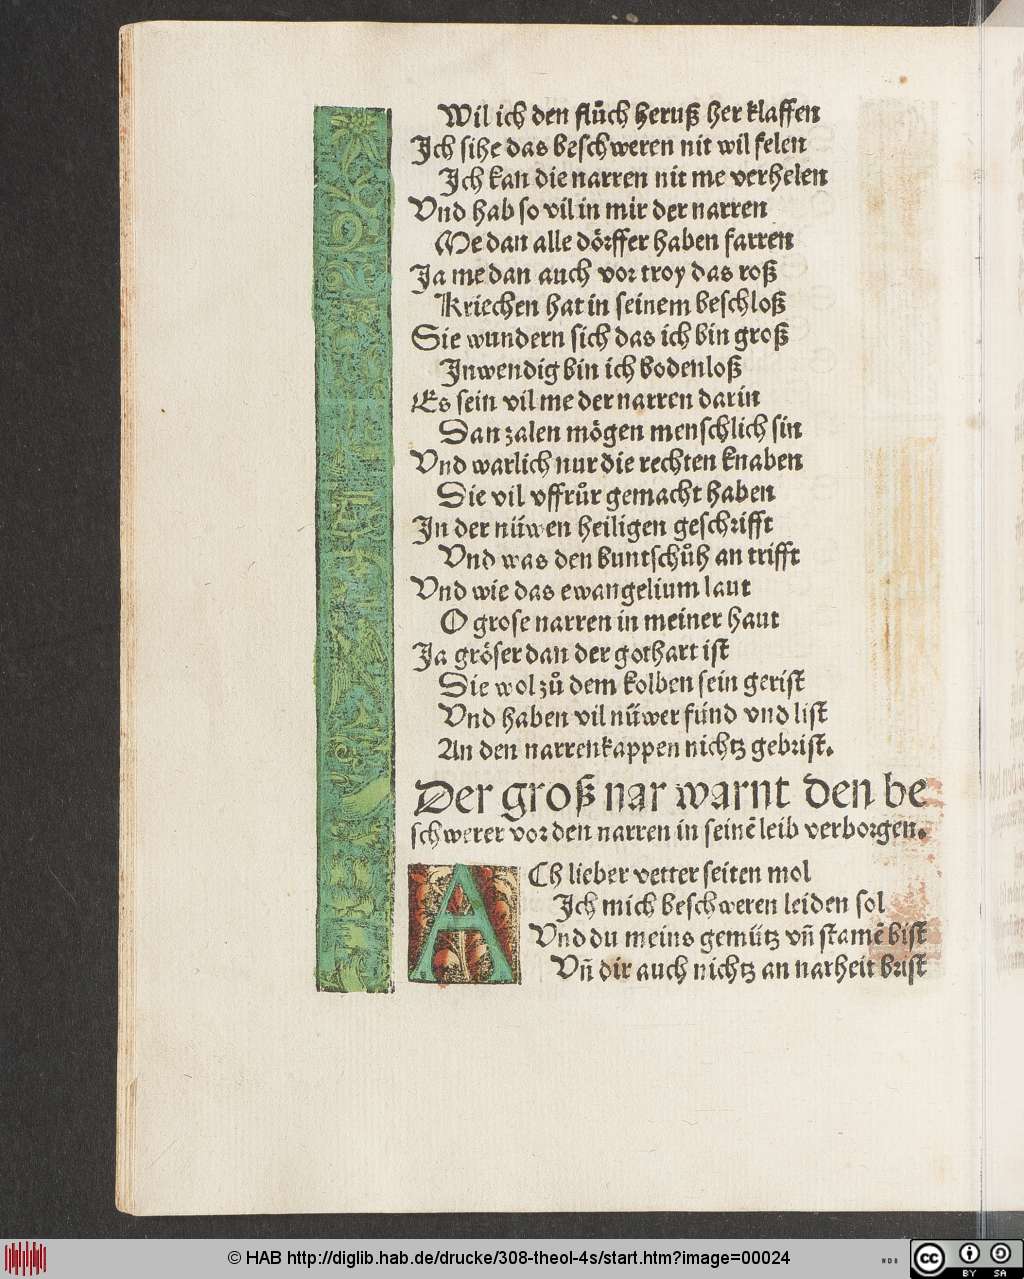 Wil ich den flůch heruß her klaffen
Ich sihe das beschweren nit wil felen
Ich kan die narren nit me verhelen
Vnd hab so vil in mir der narren
Me dan alle dörffer haben farren
Ja me dan auch vor troy das roß
Kriechen hat in seinem beschloß
Sie wundern sich das ich bin groß
Inwendig bin ich bodenloß
Es sein vil me der narren darin
Dan zalen mögen menschlich sin
Vnd warlich nur die rechten knaben
Die vil vffrůr gemacht haben
In der nüwen heiligen geschrifft
Vnd was den buntschůh an trifft
Vnd wie das ewangelium laut
O grose narren in meiner haut
Ja gröser dan der gothart ist
Die wol zů dem kolben sein gerist
Vnd haben vil nüwer fünd vnd list
An den narrenkappen nichtz gebrist.
Der groß nar warnt den be
schwerer vor den narren in seinē leib verborgen.
ACh lieber vetter seiten mol
Ich mich beschweren leiden sol
Vnd du meins gemütz vñ stamē bist
Vñ dir auch nichtz an narheit brist
© HAB http://diglib.hab.de/drucke/308-theol-4s/start.htm?image=00024
WDB
cc
BY SA